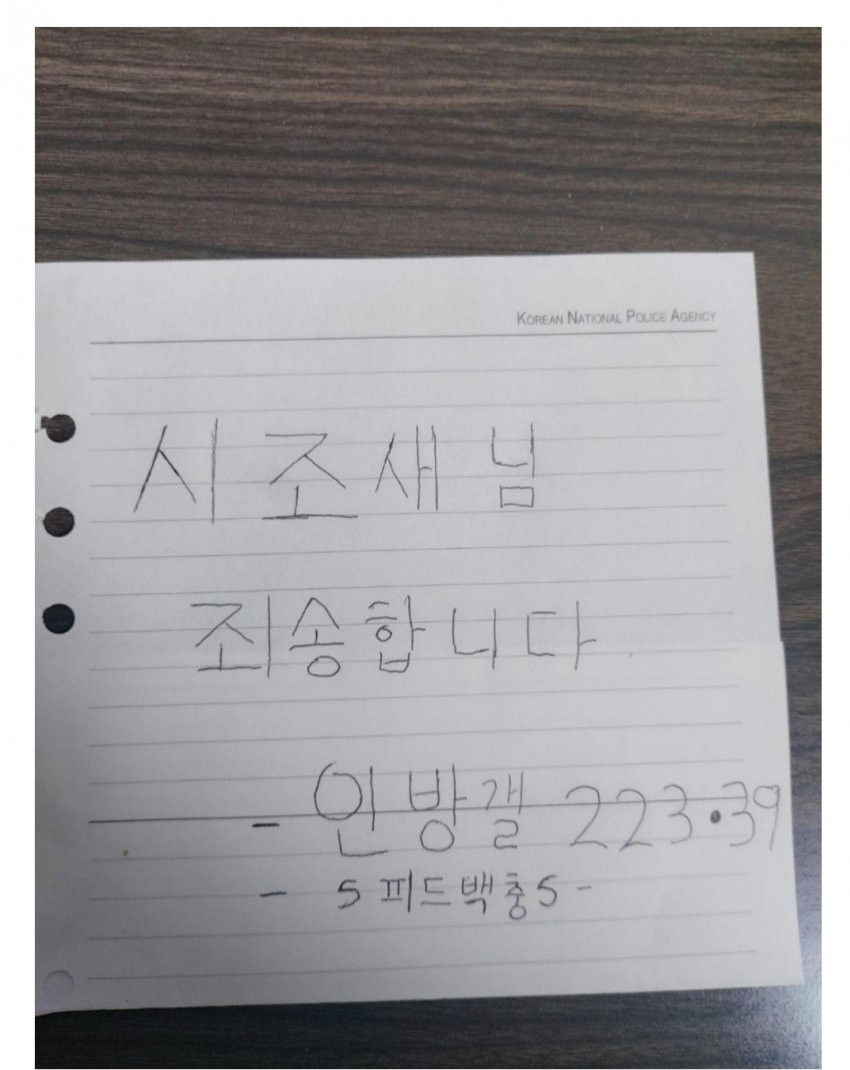 KOREAN NATIONAL POLICE AGENCY
시조새님
죄송합니다.
- 인방갤 223.39
- 5 피드백충5 -